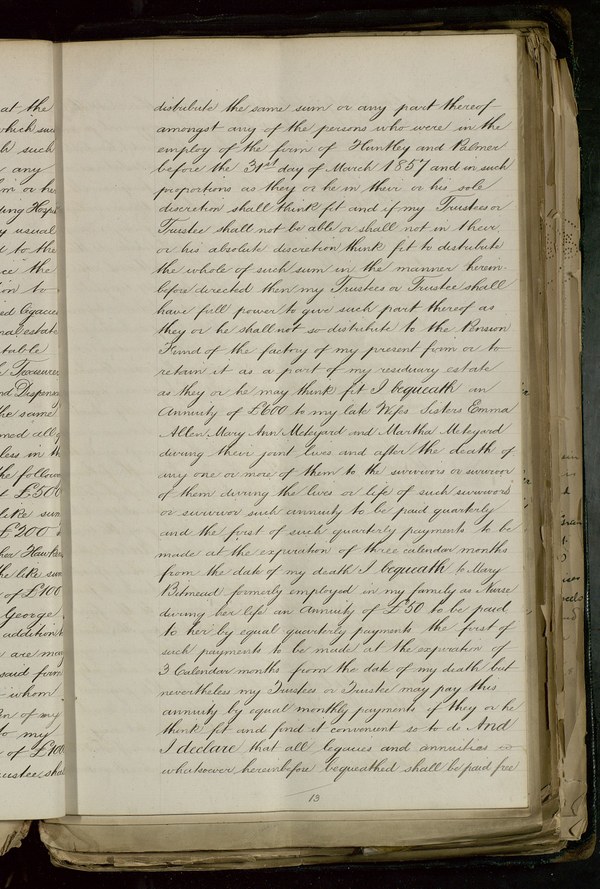 at the
which
such
any
m or he
ying Hosp
y usual
d to the
ce the
on to
ed legacies
nal estate
table
Treasurer
nd Dispens
the same
med all
less in th
he follow
£500
like sum
£200
her Hawkin
he like sum
of £100
George
addition
are may
said firm
whom
on of my
to my
of £100
rustee shal
distribute the same sum or any part thereof
amongst any of the persons who were in the
employ of the firm of Huntley and Palmer
before the 31st day of March 1857 and in such
proportions as they or he in their or his sole
discretion shall think fit and if my Trustees or
Trustee shall not be able or shall not in their
or his absolute discretion think fit to distribute
the whole of such sum in the manner herein-
before directed then my Trustees or Trustee shall
have full power to give such part thereof as
they or he shall not so distribute to the Pension
Fund of the factory of my present firm or to
retain it as a part of my residuary estate
as they or he may think fit I bequeath an
Annuity of £200 to my late Wifes Sisters Emma
Allen, Mary Ann Meteyard and Martha Meteyard
during their joint lives and after the death of
any one or more of them to the survivors or survivor
of them during the lives or life of such survivors
or survivor such annuity to be paid quarterly
and the first of such quarterly payments to be
made at the expiration of three calendar months
from the date of my death I bequeath to Mary
Bitmead formerly employed in my family as Nurse
during her life an Annuity of £50 to be paid
to her by equal quarterly payments the first of
such payments to be made at the expiration of
3 Calendar months from the date of my death but
nevertheless my Trustees or Trustee may pay this
annuity by equal monthly payments if they or he
think fit and find it convenient so to do And
I declare that all legacies and annuities
whatsoever hereinbefore bequeathed shall be paid free
13